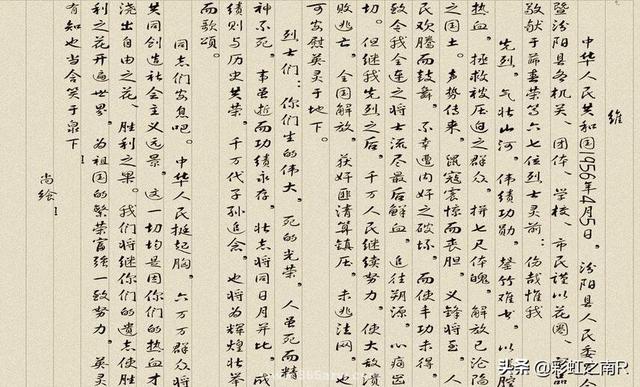 维
中华人民共和国1956年4月5日。汾阳县人民委
暨汾阳县各机关、团体、学校、市民谨以花圈、品
敬献于薛垂荣等六七位烈士灵前：伤哉惟我
先烈。气壮山河。伟绩功勋。罄竹难书。以
热血。拯救被压迫之群众。拼七尺体魄。解放已沦陷
之国土。声势传来。鼠寇惊而丧胆。义锋将至。人
民欢腾而鼓舞。不幸遭内奸之破坏。而使丰功未得。
致令我全连之将士流尽最后鲜血。追往朔源。心痛
切。但继我先烈之后。千万人民继续努力。使大敌溃
败逃亡。全国解放。获奸匪清算镇压。未逃法网。也
可安慰英灵于地下。
烈士们：你们生的伟大。死的光荣。人虽死而精
神不死。事虽逝而功绩永存。壮志将同日月并比。成
绩则与历史共荣。千万代子孙追念。也将为辉煌壮举
而歌颂。
同志们安息吧。中华人民挺起胸。六万万群众将
共同创造社会主义远景。这一切均是因你们的热血才
浇出自由之花、胜利之果。我们将继你们的遗志使胜
利之花开遍世界。为祖国的繁荣富强一致努力。英灵
有知也当含笑于泉下！
尚绘！
头条 @彩虹之南R.